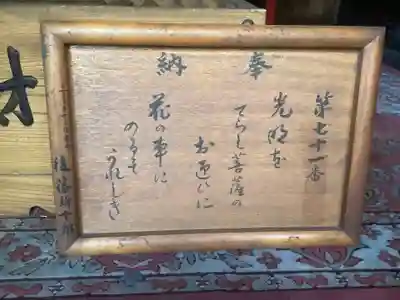 奉納
第七十一番
光明を
てらし菩薩の
お迎いに
花の車に
のるぞ
うれしき